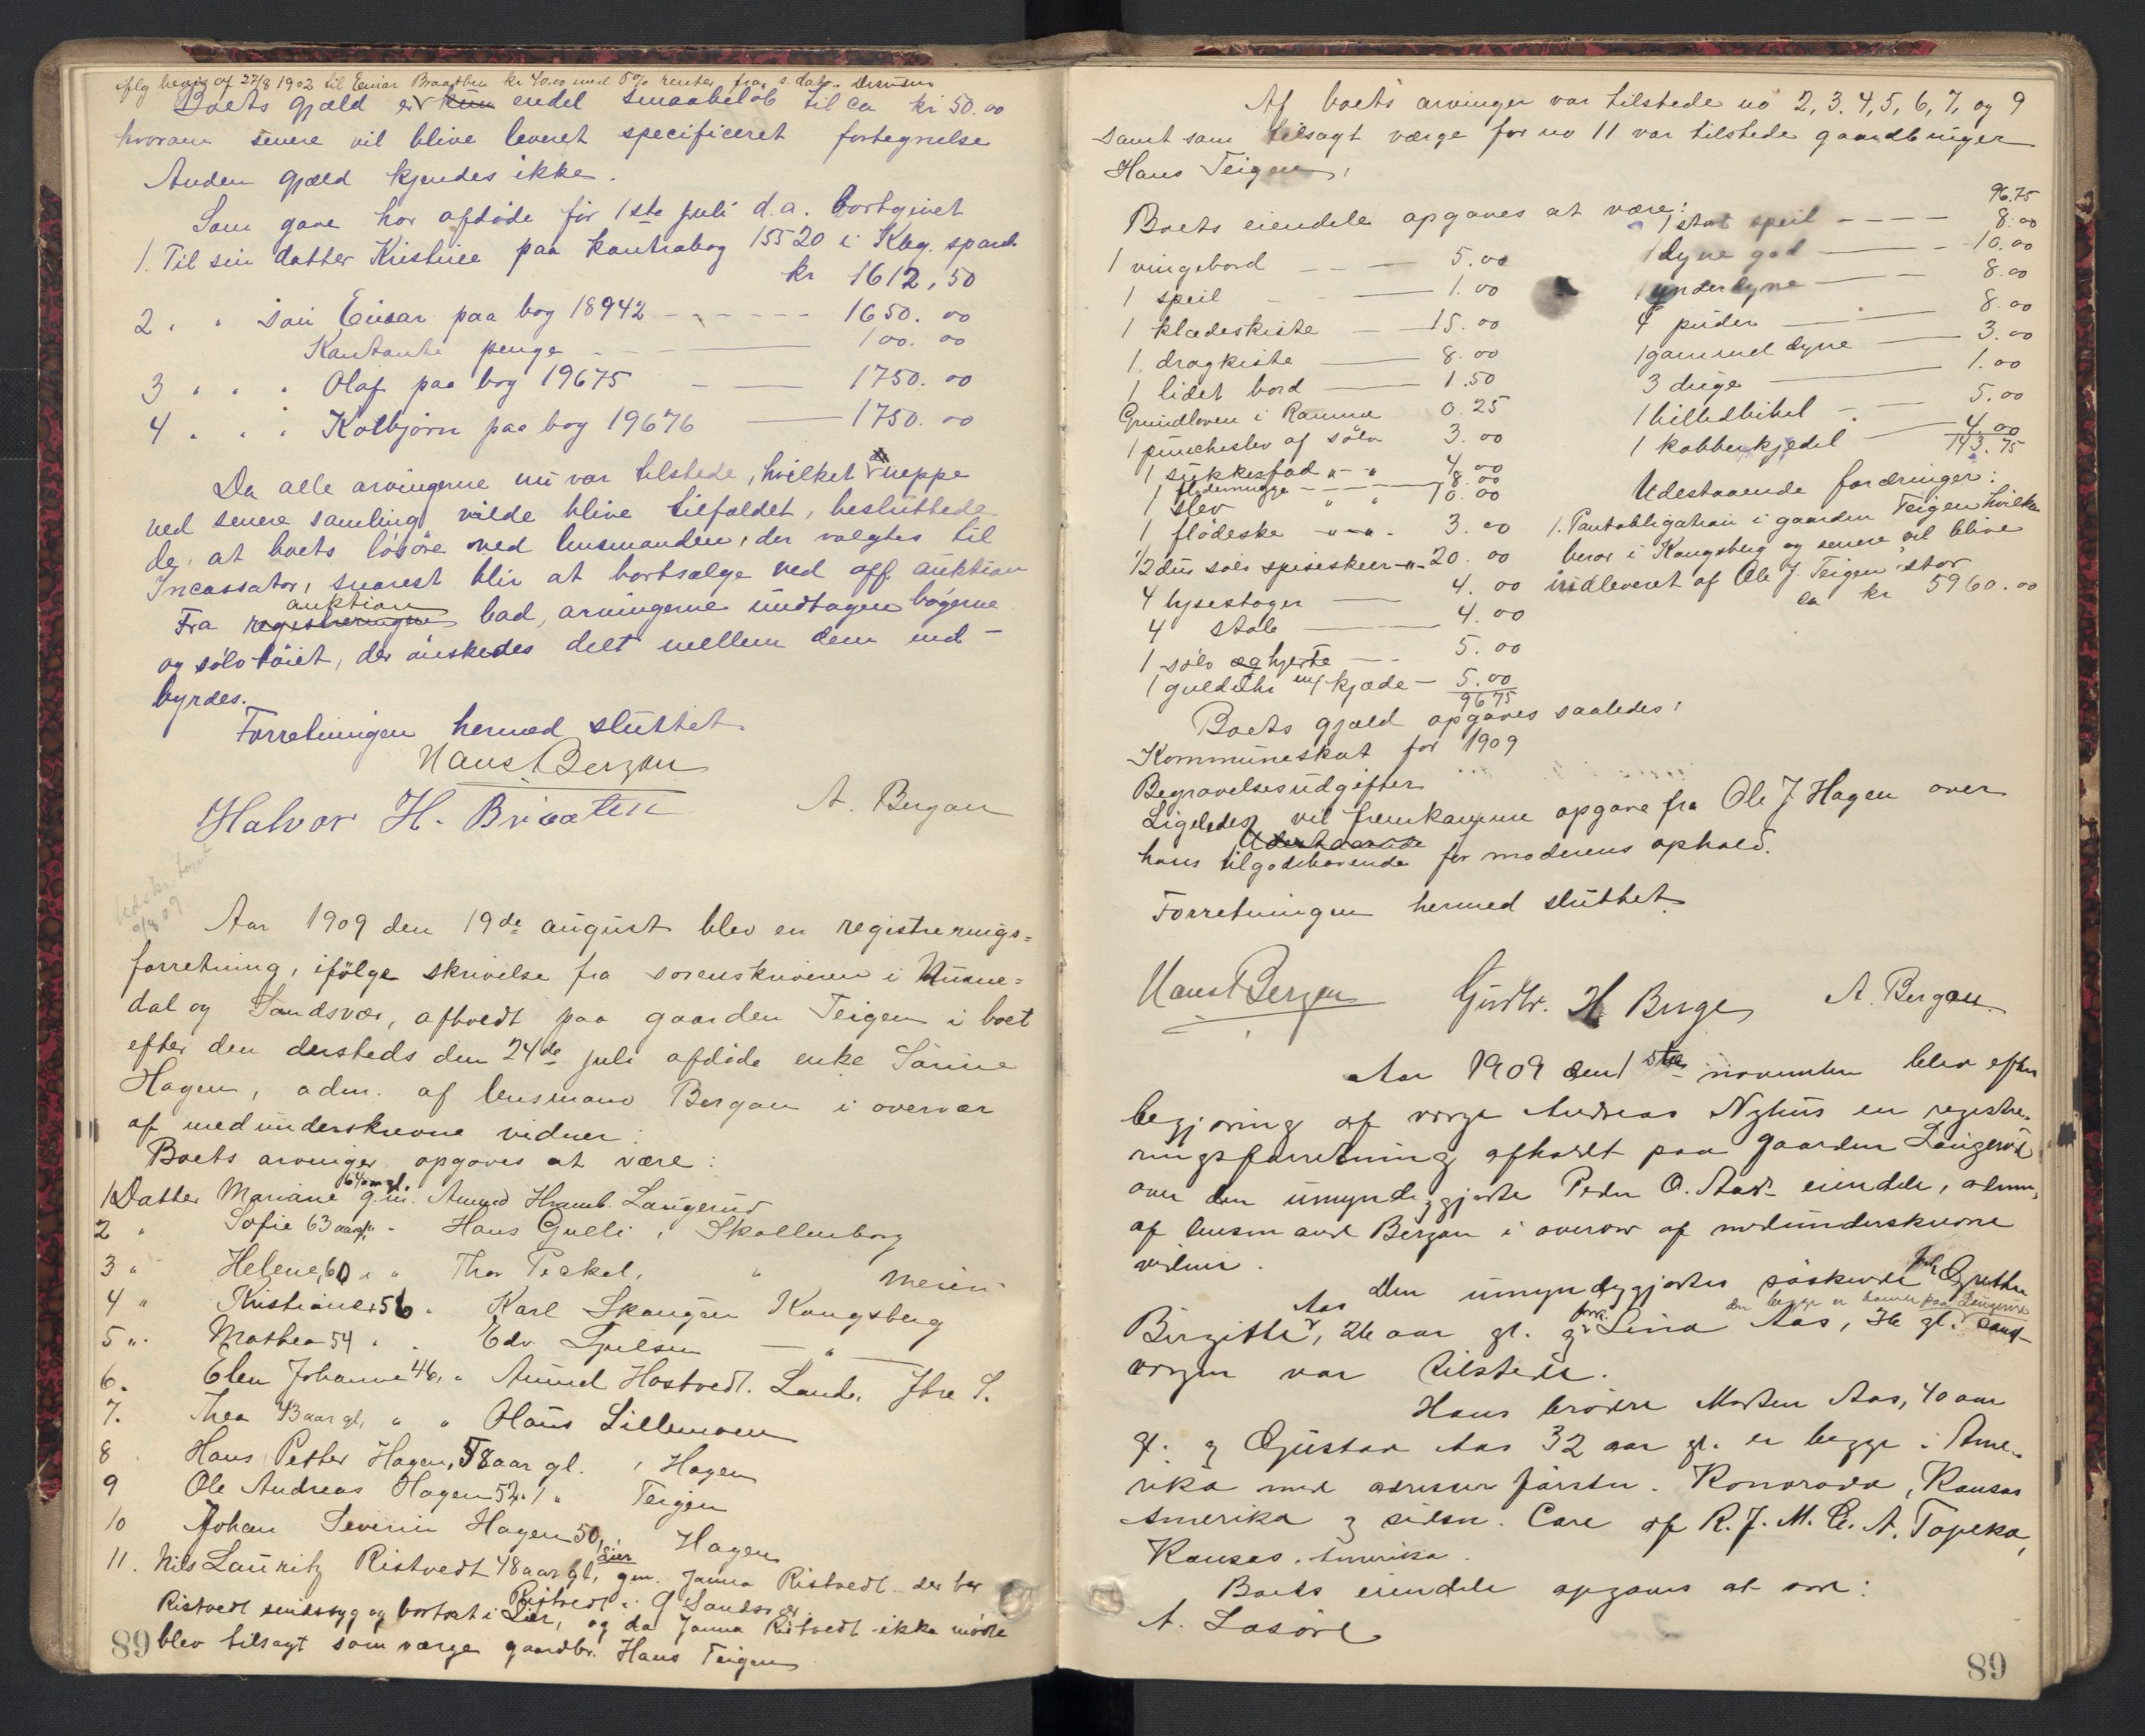 iflg bevis af 27/8 1902 til Einar Braathen kr 40.00 med 5% renter fra s. dato.
Boets gjæld er kun endel smaabeløb til ca kr 50.00
hvorom senere vil blive leveret specificeret fortegnelse
Anden gjæld kjendes ikke.
Som gave har afdøde før 1ste juli d.a. bortgivet
1. Til sin datter Kristine paa kontrabog 15520 i Kbg. spareb.
kr 1612,50
2 " " søn Einar paa bog 18942 - - - - - 1650.00
Kontante penge - - 100.00
3 " " " Olaf paa bog 19675 - - 1750.00
4 " " " Kolbjørn paa bog 19676 - 1750.00
Da alle arvingerne nu var tilstede, hvilket neppe
ved senere samling vilde blive tilfældet, besluttede
de, at boets løsøre ved lensmanden, der valgtes til
Incassator, snarest blir at bortsælge ved off. auktion
auktion
Fra registreringen bad, arvingerne undtagen bøgerne
og sølvtøiet, der ønskedes delt mellem dem ind-
byrdes.
Forretningen hermed sluttet.
Hans Bergan
Halvor H. Braaten A. Bergan
9/8 09
Aar 1909 den 19de august blev en registrerings=
forretning, ifølge skrivelse fra sorenskriveren i Nume=
dal og Sandsvær, afholdt paa gaarden Teigen i boet
efter den dersteds den 24de juli afdøde enke Sørine
Hagen, adm. af lensmand Bergan i overvær
af medunderskrevne vidner:
Boets arvinger opgaves at være:
1 Datter Mariane 64 aar gl. g.m. Amund Hramb. Laugerud
2 " Sofie 63 aar gl. " Hans Gulli, Skollenborg
3 " Helene, 60 " " Thor Teskel, " Meien
4 " Kristiane 56 " Karl Skaugen Kongsberg
5 " Mathea 54 " " Edv. Gulsen — " —
6. Elen Johanne 46, " Amund Hostvedt. Lande, Ytre S.
7. Thea 43 aar gl, " " Olaus Lillemoen
8 Hans Petter Hagen, 58 aar gl. , Hagen
9 Ole Andreas Hagen 52 " " Teigen
10 Johan Severin Hagen 50, " Hagen
11. Nils Lauritz Ristvedt 48 aar gl, gm. Janna Ristvedt - der bor
Lier
Ristvedt i G Sandsvær.
Ristvedt sindssyg og bortsat i Lier, og da Janna Ristvedt ikke mødte
blev tilsagt som værge gaardbr. Hans Teigen
89
Af boets arvinger var tilstede no 2, 3, 4, 5, 6, 7, og 9
samt som tilsagt værge for no 11 var tilstede gaardbruger
Hans Teigen,
Boets eiendele opgaves at være:
1 vingebord - - - 5.00
1 speil - - 1.00
1 klædeskiste - 15.00
1. dragkiste - 8.00
1 lidet bord - 1.50
Grundloven i Ramme 0.25
1 puncheslev af sølv 3.00
1 sukkerfad " - " 4.00
1 flødemugge - - - 8.00
1 slev " " 10.00
1 flødeske " - " - 3.00
1/2 dus sølv spiseskeer - " - 20.00
4 lysestager - 4.00
4 stole - 4.00
1 sølv æghjerte - - 5.00
1 gulduhr m/ kjæde - 5.00
96 75
96.75
1 stort speil - - - - 8.00
1 dyne god - - 10.00
1 underdyne - - 8.00
4 puder - - 8.00
1 gammel dyne - 3.00
3 duge - 1.00
1 billedbibel - - 5.00
1 kobberkjedel - 4.00
143.75
Udestaaende fordringer:
1. Pantobligation i gaarden Teigen hvilken
beror i Kongsberg og senere vil blive
indleveret af Ole J. Teigen stor
ca kr 5960.00
Boets gjæld opgaves saaledes:
Kommuneskat for 1909
Begravelsesudgifter
Ligeledes vil fremkomme opgave fra Ole J Hagen over
Udestaaende
hans tilgodehavende for moderens ophold.
Forretningen hermed sluttet.
Hans Bergan Gudbr. H Berge A. Bergan
Aar 1909 den 1ste november blev efter
begjæring af værge Andreas Nyhus en registre-
ringsforretning afholdt paa gaarden Laugerud
over den umyndiggjorte Peder O. Aas eiendele, adm.
af lensmand Bergan i overvær af medunderskrevne
vidner.
Den umyndiggjortes søskende Grethe
Aas den begge er boende paa Laugerud
Birgitte, 26 aar gl. g Lina Aas, 36 gl. samt
værgen var tilstede.
Hans brødre Morten Aas, 40 aar
gl. g Gustav Aas 32 aar gl. er begge i Ame-
rika med adresser første. Konorado, Kansas
Amerika g sidste. Care of R. J. M. C. A. Topeka,
Kansas. Amerika.
Boets eiendele opgaves at være:
A. Løsøre
89